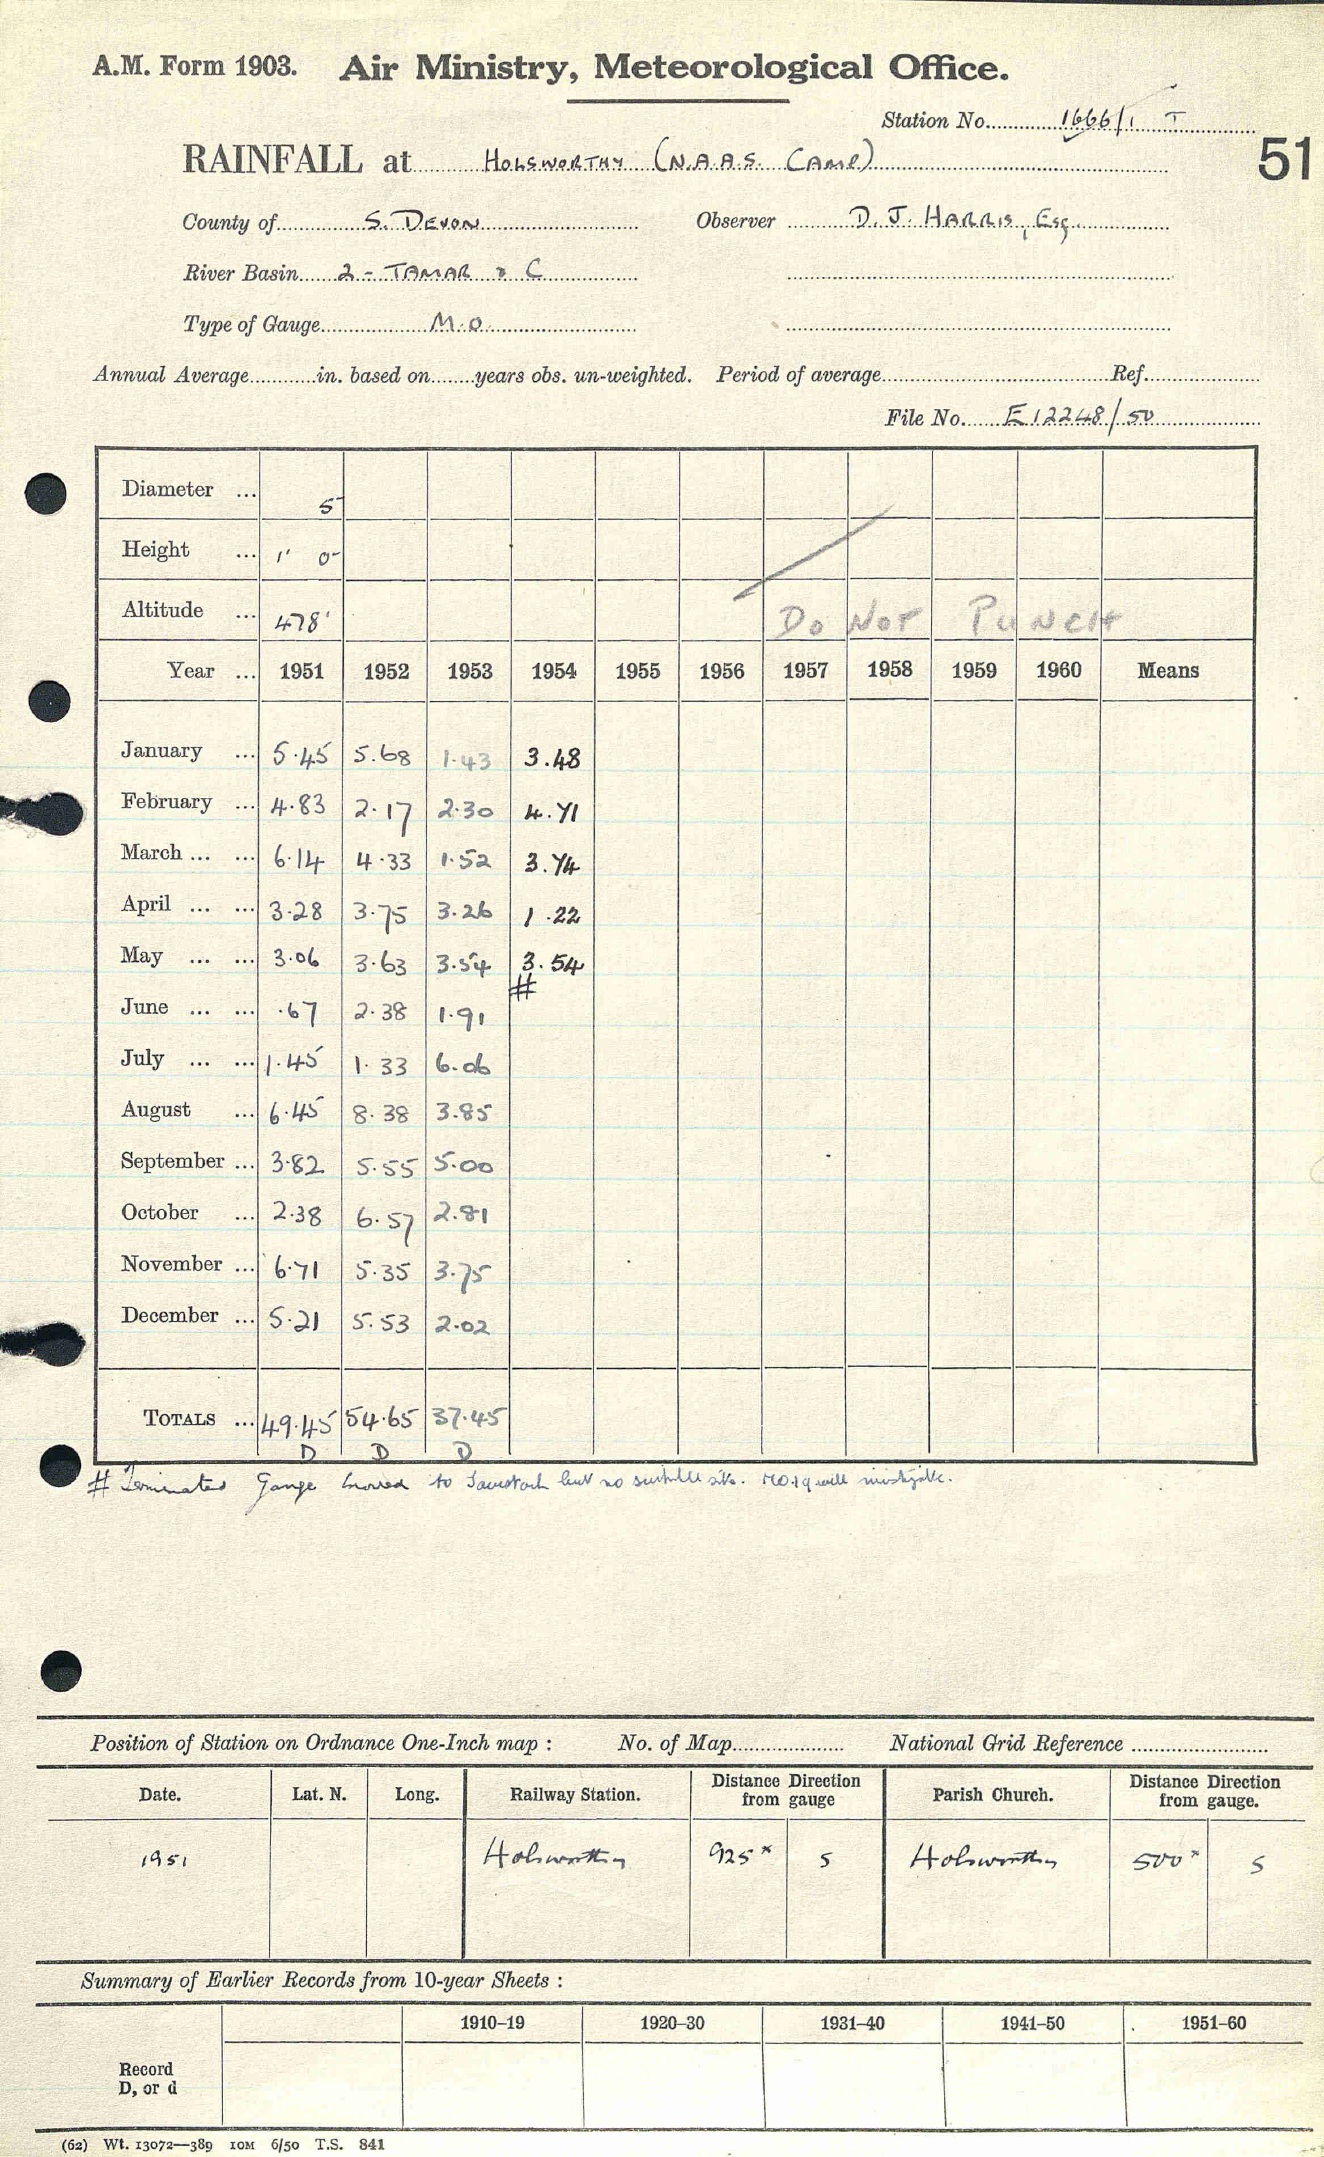 A.M. Form 1903. Air Ministry, Meteorological Office.
Station No. 1666/1 T
51
RAINFALL at HOLSWORTHY (N.A.A.S. CAMP)
County of S. DEVON Observer D. J. HARRIS, Esq.
River Basin 2 - TAMAR & C
Type of Gauge M.O.
Annual Average in. based on years obs. un-weighted. Period of average Ref.
File No. E12248/50
Diameter ... 5
Height ... 1' 0"
Altitude ... 478'
DO NOT PUNCH
Year ... 1951 1952 1953 1954 1955 1956 1957 1958 1959 1960 Means
January ... 5.45 5.68 1.43 3.48
February ... 4.83 2.17 2.30 4.71
March ... ... 6.14 4.33 1.52 3.74
April ... ... 3.28 3.75 3.26 1.22
May ... ... 3.06 3.63 3.54 3.54
#
June ... ... .67 2.38 1.91
July ... ... 1.45 1.33 6.06
August ... 6.45 8.38 3.85
September ... 3.82 5.55 5.00
October ... 2.38 6.57 2.81
November ... 6.71 5.35 3.75
December ... 5.21 5.53 2.02
TOTALS ... 49.45 54.65 37.45
D D D
# Terminated Gauge moved to Tavistock but no suitable site. M.O.19 will investigate.
Position of Station on Ordnance One-Inch map : No. of Map National Grid Reference
Date. Lat. N. Long. Railway Station. Distance Direction from gauge Parish Church. Distance Direction from gauge.
1951 Holsworthy 925 x S Holsworthy 500 x S
Summary of Earlier Records from 10-year Sheets :
1910-19 1920-30 1931-40 1941-50 1951-60
Record
D, or d
(62) Wt. 13072—389 10M 6/50 T.S. 841